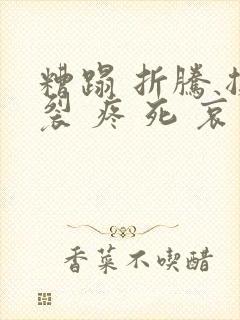 糟蹋 折騰
裂 疼 死 哀
香菜不喫醋